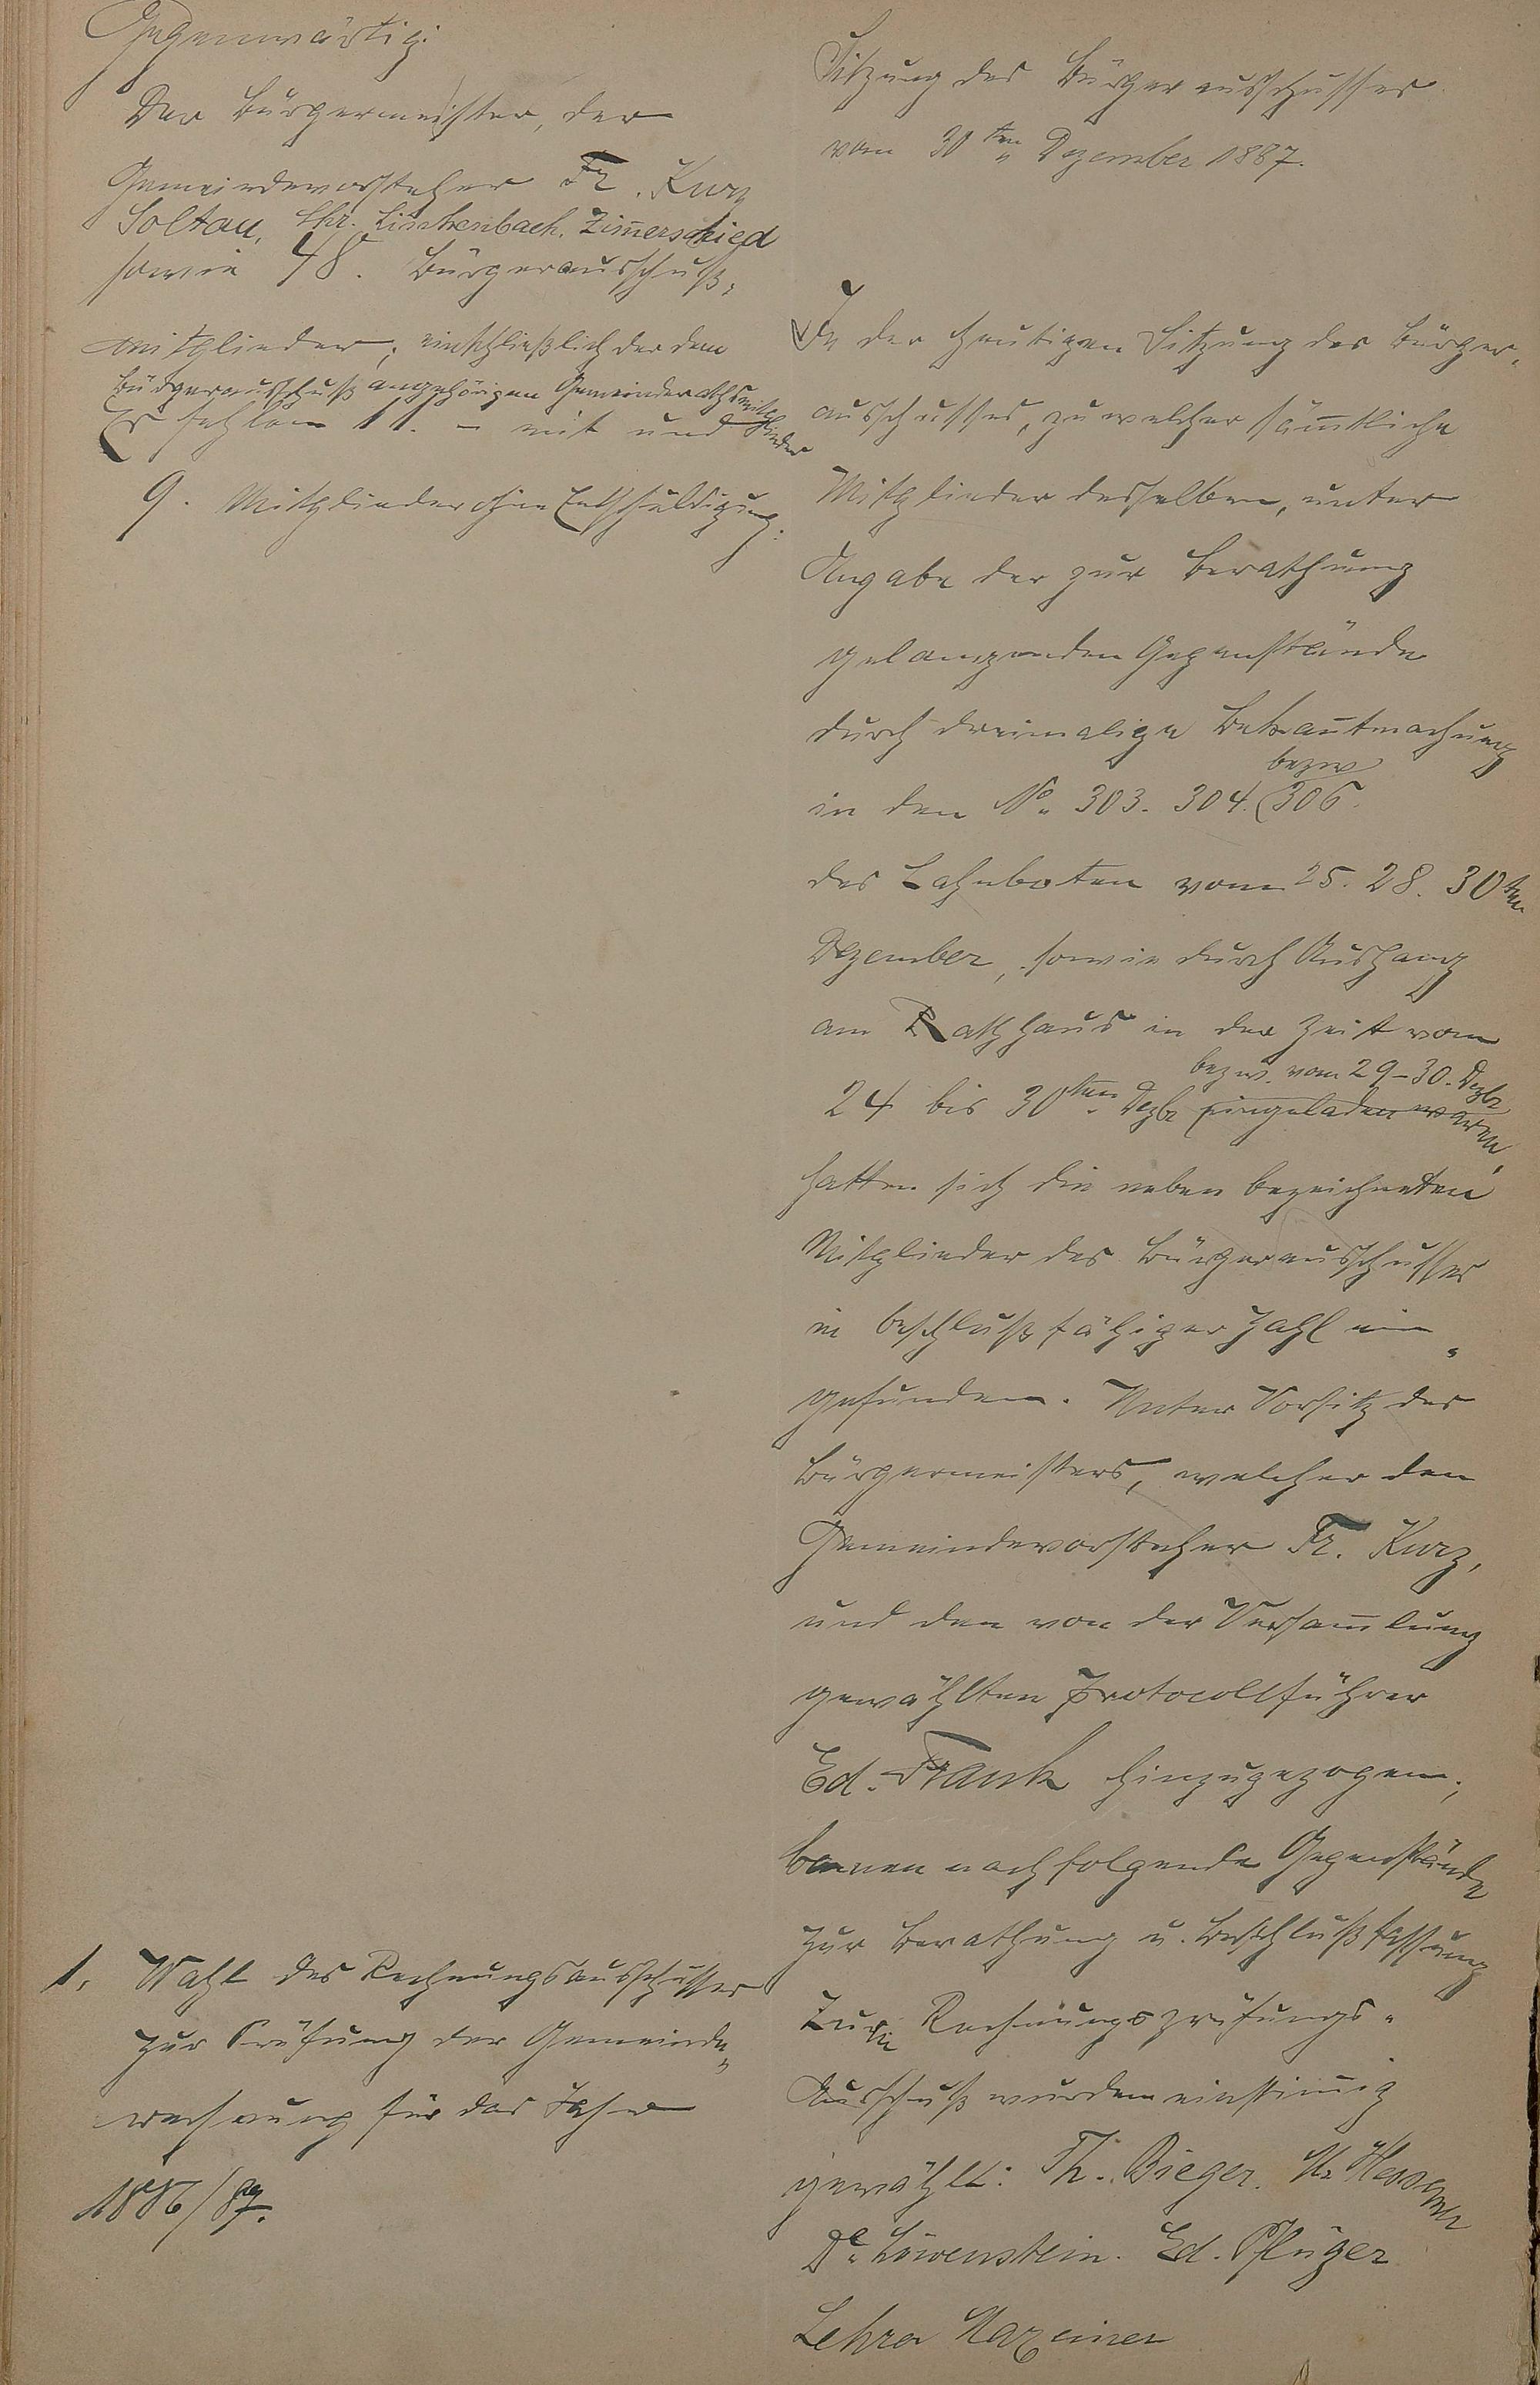 Gegenwärtig:
Der Bürgermeister, der
Gemeindevorsteher Fr. Kurz
Soltau, Chr. Linkenbach, Zim̅erschied
sowie 48. Bürgerausschuß„
mitglieder, einschließlich der dem
Bürgerausschuß angehörigen Gemeinderathsmitglieder
Es fehlen 11. – mit und
9. Mitglieder ohne Entschuldigung.
1. Wahl des Rechnungsausschusses
zur Prüfung der Gemeinde„
rechnung für das Jahr
1886/87.
Sitzung des Bürgerausschusses
vom 30ten Dezember 1887.
In der heutigen Sitzung des Bürger„
ausschusses, zu welcher säm̅tliche
Mitglieder desselben, unter
Angabe der zur Berathung
gelangenden Gegenstände
durch dreimalige Bekan̅tmachung
bezw
in den No. 303. 304. 306.
des Lahnboten vom 25. 28. 30ten
Dezember, sowie durch Aushang
am Rathhaus in der Zeit vom
bezw. vom 29–30. Dezbr
24 bis 30ten Dezbr eingeladen waren,
hatten sich die neben bezeichneten
Mitglieder des Bürgerausschusses
in beschlußfähiger Zahl ein„
gefunden. Unter Vorsitz des
Bürgermeisters, welcher den
Gemeindevorsteher Fr. Kurz,
und den von der Versam̅lung
gewählten Protocollführer
Ed. Frank hinzugezogen,
kamen nachfolgende Gegenstände
zur Berathung u. Beschlußfassung
Rechnungsprüfungs„
Ausschuß wurden einstim̅ig
gewählt: Th. Bieger.
Dr. Löwenstein. Ed. Pflüger
Lehrer